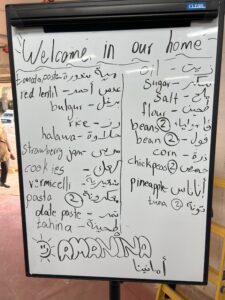 Welcome in our home
tomato paste - ربة بندورة
red lentil - عدس أحمر
bulgur - برغل
rice - رز
halawa - حلاوة
strawberry jam - مربى
cookies -
vermicelli - شعيرية
pasta ② معكرونة
date paste - تمر
tahina - طحينة
oil - زيت
Sugar - سكر
Salt - ملح
flour - طحين
beans ②
bean ② - فول
corn - ذرة
chickpeas ② حمص
pineapple أناناس
tuna ② تونة
AMANINA
أمانينا
CLEAR